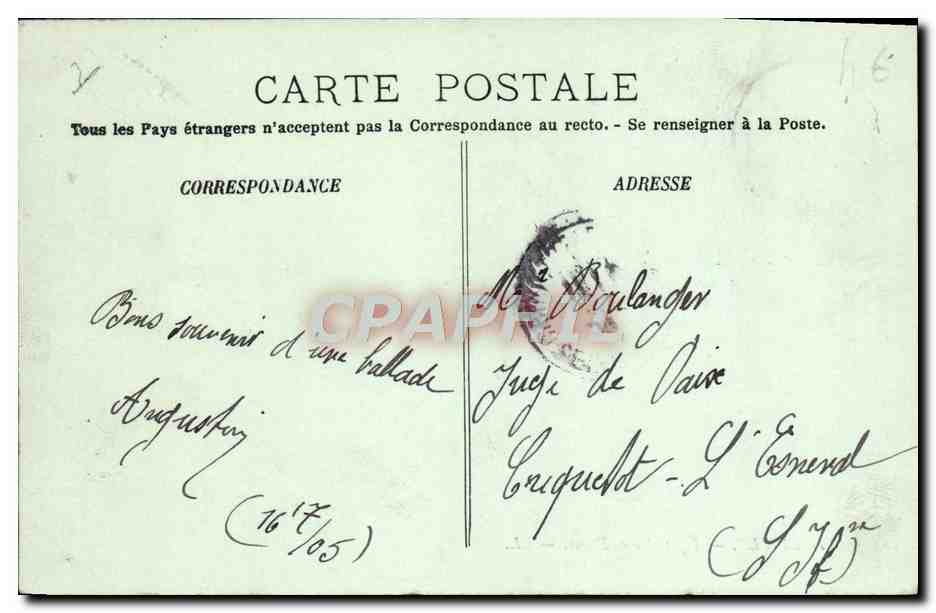 CARTE POSTALE
Tous les Pays étrangers n'acceptent pas la Correspondance au recto. - Se renseigner à la Poste.
CORRESPONDANCE
ADRESSE
Bons souvenir d'une ballade
Augustin
(16/7/05)
Boulanger
Juge de Paix
Criquetot - L'Esneval
(S Infre)
CPAPHIL
46